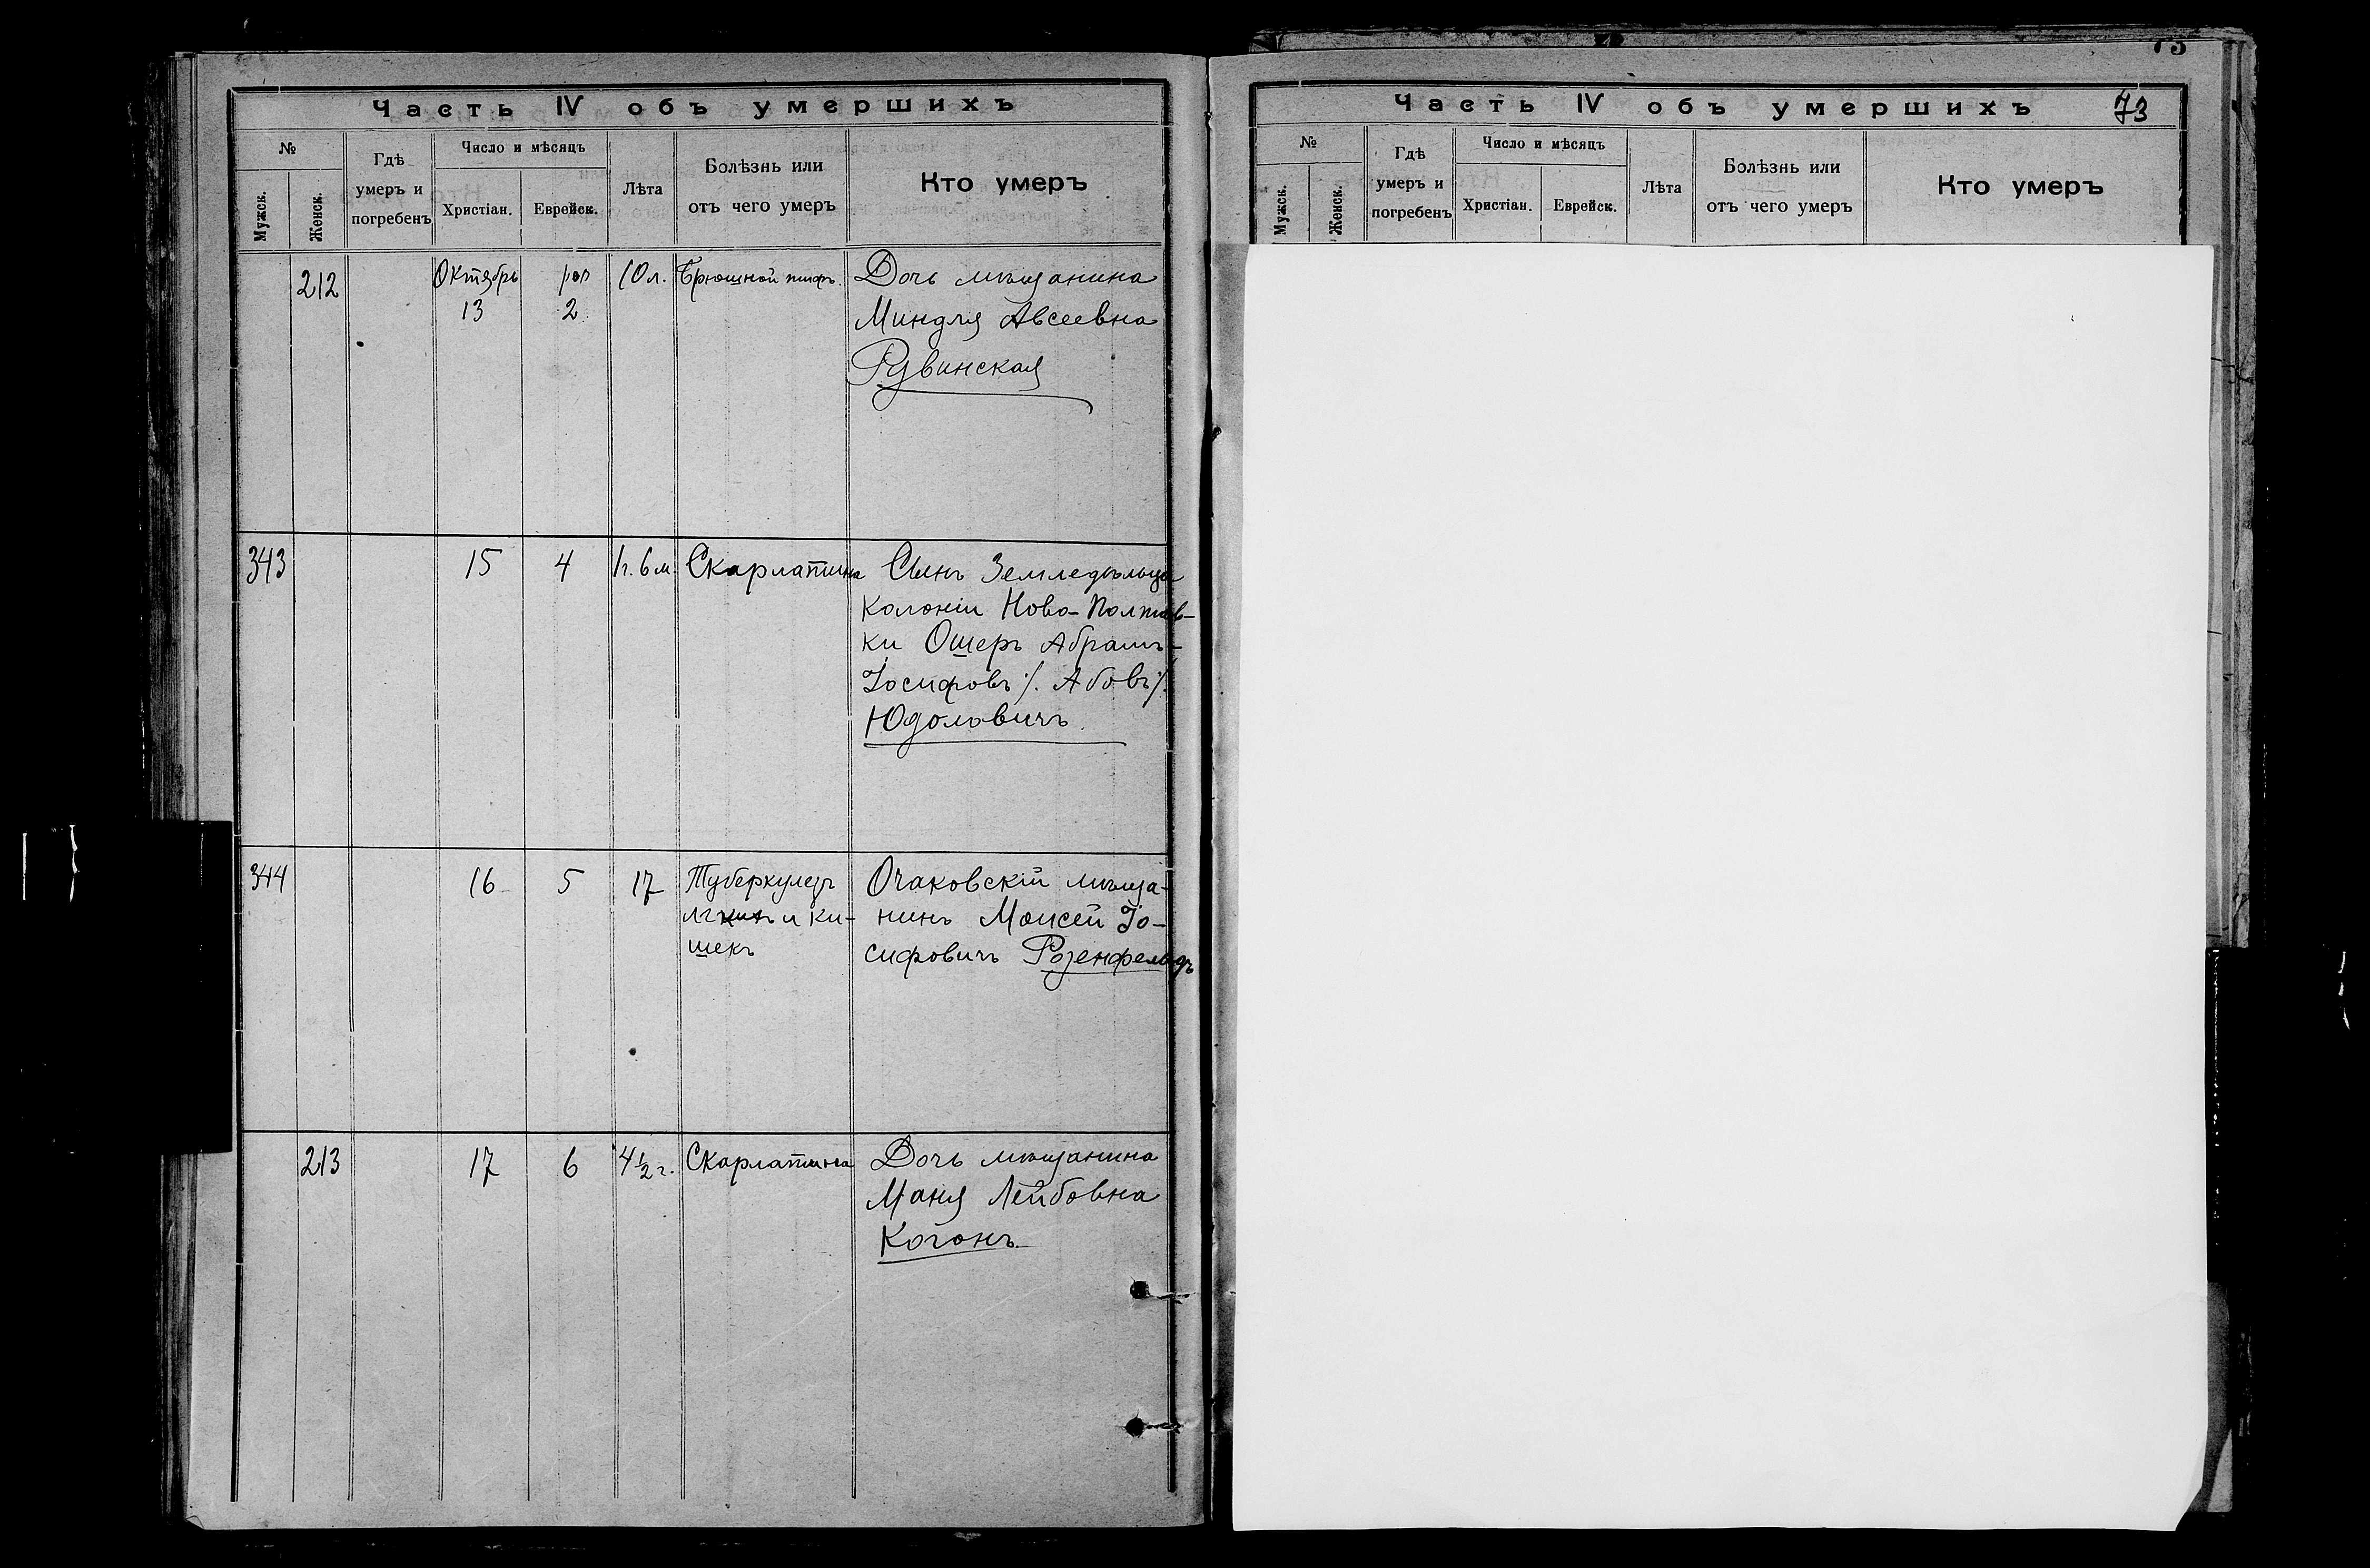 Часть IV объ умершихъ
№
Мужск.
Женск.
Гдѣ
умеръ и
погребенъ
Число и мѣсяцъ
Христіан.
Еврейск.
Лѣта
Болѣзнь или
отъ чего умеръ
Кто умеръ
212
Октябрь
13
2
10 л.
Брюшной тифъ.
Дочь мѣщанина
Миндля Авсеевна
Рувинская
343
15
4
1 г. 6 м.
Скарлатина
Сынъ Земледѣльца
Колоніи Ново-Полтав-
ки Ошеръ Абрамъ-
Іосифовъ /. Абовъ /.
Юдоловичъ.
344
16
5
17
Туберкулезъ
и ки-
шекъ
Очаковскій мѣща-
нинъ Моисей Іо-
сифовичъ Розенфельдъ
213
17
6
4 ½ г.
Скарлатина
Дочь мѣщанина
Маня Лейбовна
Когонъ
Часть IV объ умершихъ
73
№
Мужск.
Женск.
Гдѣ
умеръ и
погребенъ
Число и мѣсяцъ
Христіан.
Еврейск.
Лѣта
Болѣзнь или
отъ чего умеръ
Кто умеръ